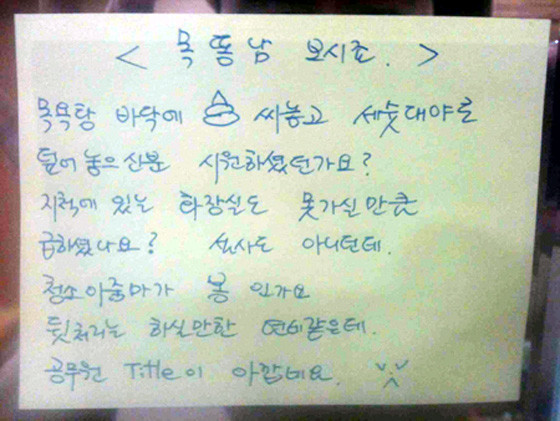 < 목똥남 보시죠. >
목욕탕 바닥에 💩 싸놓고 세숫대야로
덮어 놓으신분 시원하셨던가요?
지척에 있는 화장실도 못가실만큼
급하셨나요? 설사도 아니던데.
청소아줌마가 봉 인가요
뒷처리는 하실만한 연배같은데.
공무원 Title이 아깝네요.